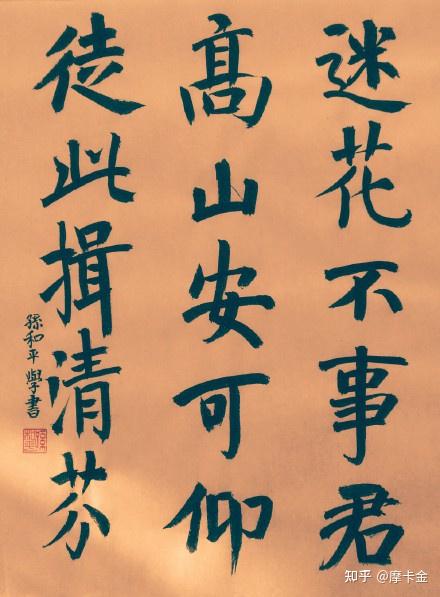 迷花不事君
髙山安可仰
徒此揖清芬
孫和平學書
知乎 @摩卡金